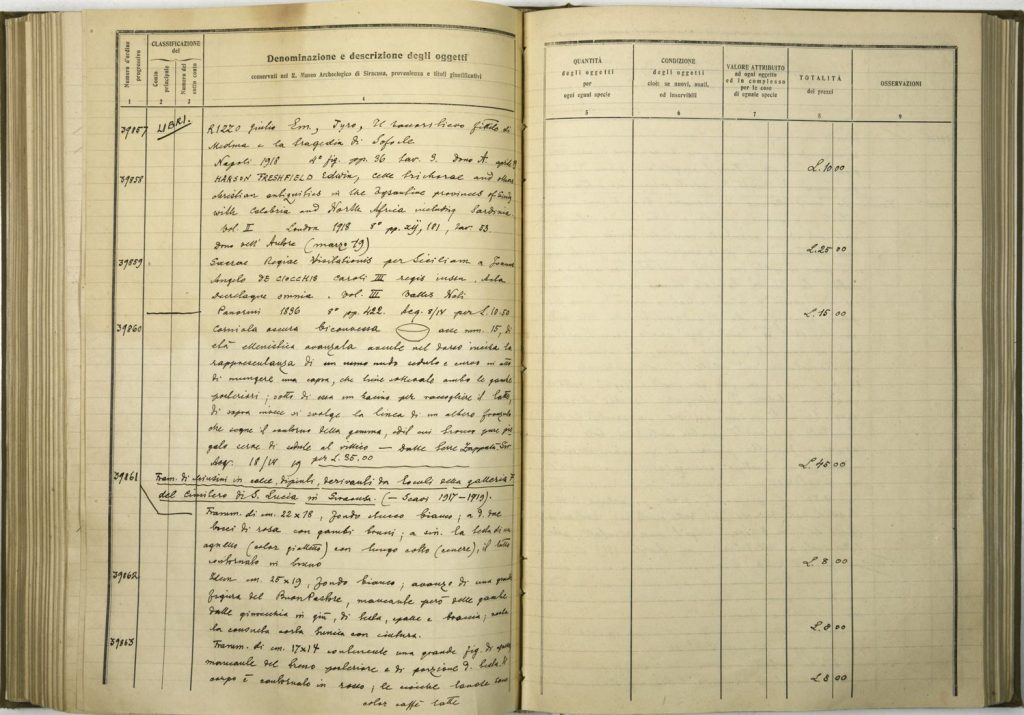 Numero d'ordine progressivo
CLASSIFICAZIONE
del
Conto principale
Numero del sotto conto
Denominazione e descrizione degli oggetti
conservati nel R. Museo Archeologico di Siracusa, provenienza e titoli giustificativi
1 2 3 4
39857 LIBRI. RIZZO Giulio Em., Tyro, Il bassorilievo fittile di
Medma e la tragedia di Sofocle
Napoli 1918 4° fig. pp. 36 tav. 3. Dono A. aprile 19
39858 HANSON FRESHFIELD Edwin, Cellae trichorae and other
christian antiquities in the Byzantine provinces of Sicily
with Calabria and North Africa including Sardinia
Vol II London 1918 8° pp. XIJ, 181, tav. 53.
Dono dell'Autore (marzo 19)
39859 Sacrae Regiae Visitationis per Siciliam a Joanne
Angelo DE CIOCCHIS Caroli III regis iussu, Acta
Decretaque omnia. Vol. III Vallis Noti
Panormi 1836 8° pp. 422. Acq. 8/14 per L. 10.50
39860 Corniola oscura biconvessa asse mm. 15, di
età ellenistica avanzata avente nel dorso incisa la
rappresentanza di un uomo nudo seduto e curvo in atto
di mungere una capra, che tiene sollevate ambo le gambe
posteriori; sotto di essa un bacino per raccogliere il latte,
di sopra invece si svolge la linea di un albero fronzuto
che segue il contorno della gemma, e del cui tronco pare
serve di sedile al — Dalle
Acq. 18/14 19 per L. 35.00
39861 Fram. di in calce, dipinti, derivanti da loculi della galleria
del Cimitero di S. Lucia in Siracusa. (— Scavi 1917-1919).
Framm. di cm. 22 x 18, fondo stucco bianco; a d. due
bocci di rosa con gambi bruni; a sin. la testa di un
agnello (color gialletto) con lungo collo (cenere), il tutto
contornato in bruno
39862 Idem cm. 25 x 19, fondo bianco; avanzo di una grande
figura del Buon Pastore, mancante però delle gambe
dalle ginocchia in giù, di testa, spalle e braccia; veste
la consueta corta tunica con cintura.
39863 Framm. di cm. 17 x 14 contenente una grande fig. di
mancante del treno posteriore e di porzione d. testa. Il
corpo è contornato in rosso; le
color caffè latte
QUANTITÀ
degli oggetti
per
ogni egual specie
CONDIZIONE
degli oggetti
cioè: se nuovi, usati,
od inservibili
VALORE ATTRIBUITO
ad ogni oggetto
ed in complesso
per le cose
di eguale specie
TOTALITÀ
dei prezzi
OSSERVAZIONI
5 6 7 8 9
L. 10.00
L. 25 00
L. 15 00
L. 45 00
L. 8 00
L. 8 00
L. 8 00